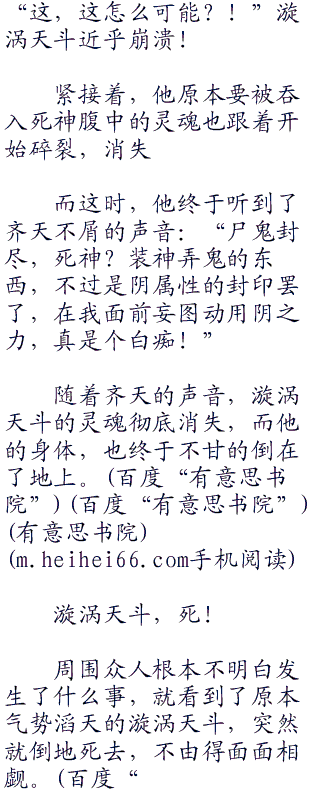 “这，这怎么可能？！”漩
涡天斗近乎崩溃！
紧接着，他原本要被吞
入死神腹中的灵魂也跟着开
始碎裂，消失
而这时，他终于听到了
齐天不屑的声音：“尸鬼封
尽，死神？装神弄鬼的东
西，不过是阴属性的封印罢
了，在我面前妄图动用阴之
力，真是个白痴！”
随着齐天的声音，漩涡
天斗的灵魂彻底消失，而他
的身体，也终于不甘的倒在
了地上。(百度“有意思书
院”)(百度“有意思书院”)
(有意思书院)
(m.heihei66.com手机阅读)
漩涡天斗，死！
周围众人根本不明白发
生了什么事，就看到了原本
气势滔天的漩涡天斗，突然
就倒地死去，不由得面面相
觑。(百度“